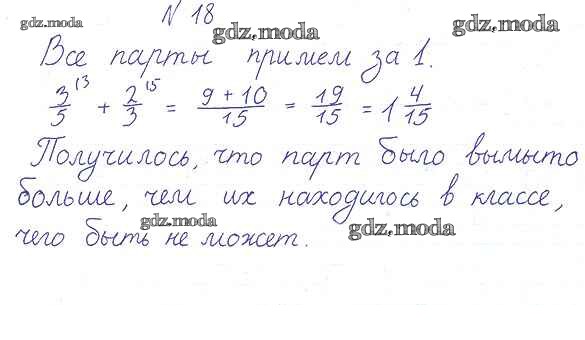 № 18
gdz.moda
gdz.moda
gdz.moda
Все парты примем за 1.
3/5 ⁽³ + 2/3 ⁽⁵ = 9 + 10/15 = 19/15 = 1 4/15
Получилось, что парт было вымыто
больше, чем их находилось в классе,
чего быть не может.
gdz.moda
gdz.moda